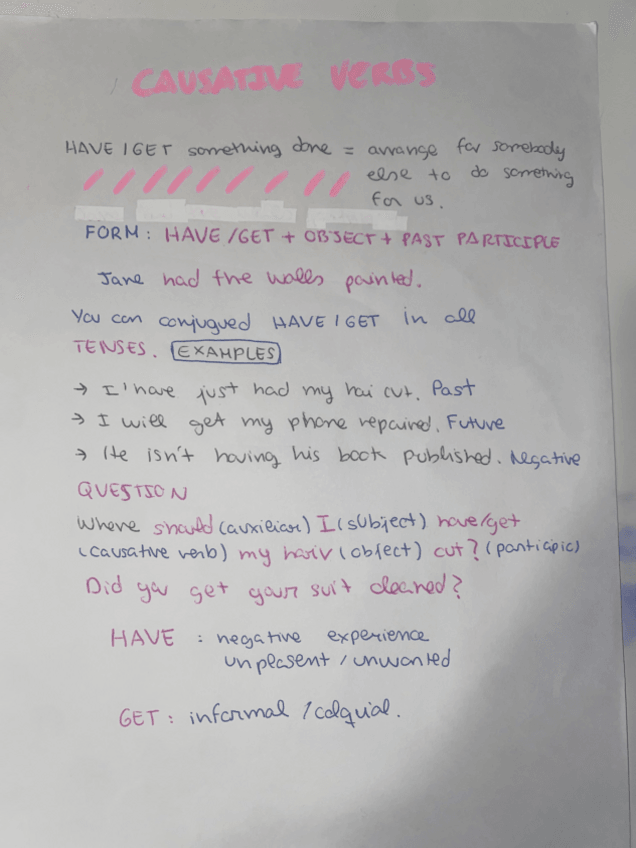 CAUSATIVE VERBS
HAVE / GET something done = arrange for somebody
else to do something
for us.
FORM: HAVE /GET + OBJECT + PAST PARTICIPLE
Jane had the walls painted.
You can conjugued HAVE / GET in all
TENSES. EXAMPLES
→ I'have just had my hai cut. Past
→ I will get my phone repaired. Future
→ He isn't having his book published. Negative
QUESTION
Where should (auxiliar) I (subject) have/get
(causative verb) my hariv (object) cut? (participic)
Did you get your suit cleaned?
HAVE : negative experience
unplesent / unwanted
GET : informal / colquial.